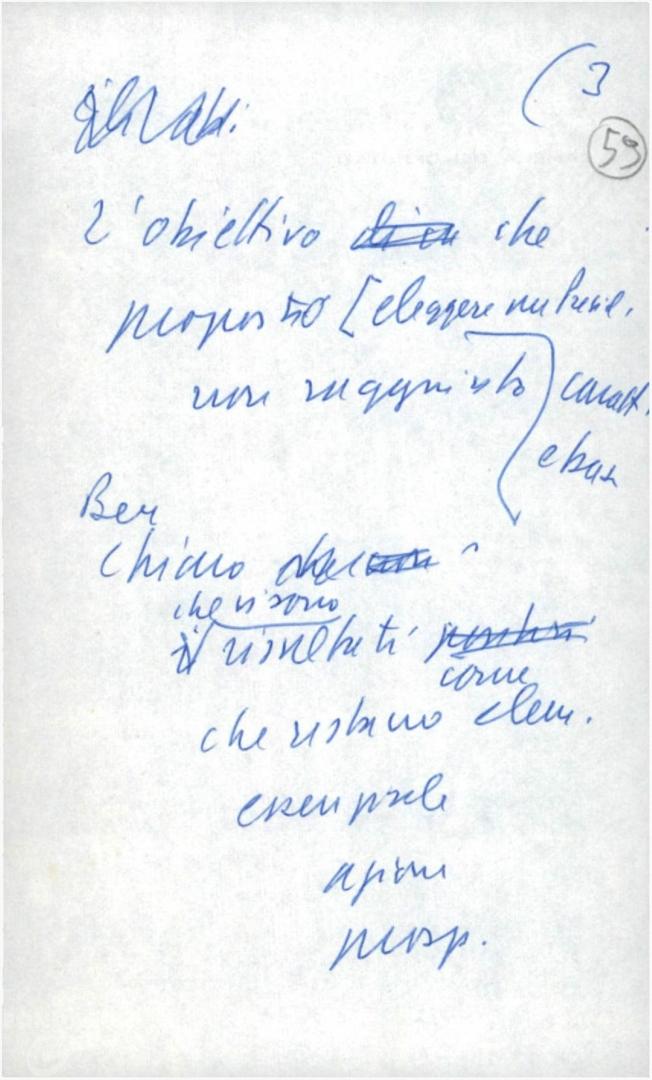 (3
59
L'obiettivo che
proposto [eleggere un Presid.
non raggiunto
caratt.
e bas
Ben
chiaro
che vi sono
risultati
come
che restano elem.
essenziale
azione
prosp.